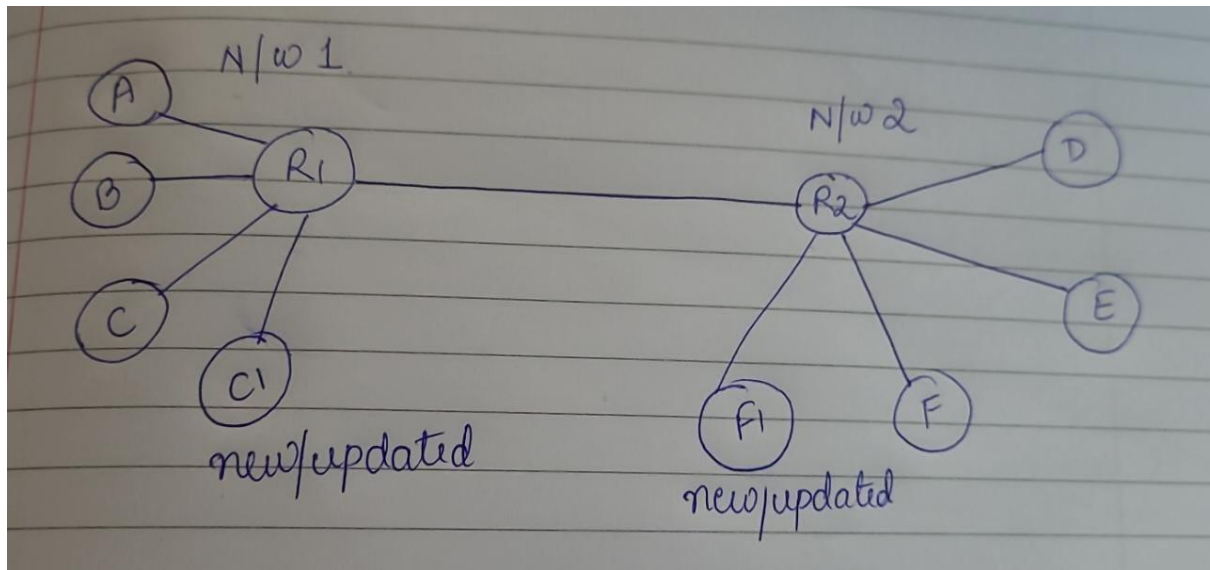 N/W 1
A
R1
B
C
C1
new/updated
N/W 2
D
R2
E
F1
F
new/updated